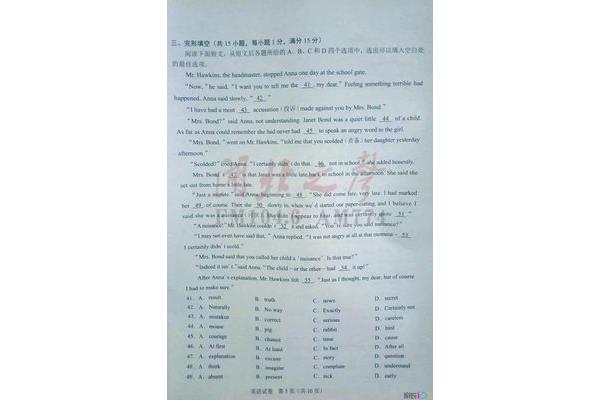 三、完形填空（共 15 小题，每小题 1 分，满分 15 分）
阅读下面短文，从短文后各题所给的 A、B、C 和 D 四个选项中，选出可以填入空白处
的最佳选项。
Mr. Hawkins, the headmaster, stopped Anna one day at the school gate.
"Now," he said. "I want you to tell me the 41 , my dear." Feeling something terrible had
happened, Anna said slowly, " 42 ."
"I have had a most 43 accusation (投诉) made against you by Mrs. Bond."
"Mrs. Bond?" said Anna, not understanding. Janet Bond was a quiet little 44 of a child.
As far as Anna could remember she had never had 45 to speak an angry word to the girl.
"Mrs. Bond," went on Mr. Hawkins, "told me that you scolded (责备) her daughter yesterday
afternoon."
"Scolded?" cried Anna. "I certainly didn't do that. 46 not in school," she added honestly.
Mrs. Bond's 47 is that Janet was a little late back to school in the afternoon. She said she
set out from home a little late.
"Just a minute," said Anna, beginning to 48 . "She did come late, very late. I had marked
her 49 of course. Then she 50 slowly in, when we'd started our paper-cutting, and I believe I
said she was a nuisance. She didn't appear to hear, and was certainly 51 ."
"A nuisance! Mr. Hawkins couldn't 52 it and asked. "You're sure you said nuisance?"
"I may not even have said that," Anna replied. "I was not angry at all at that moment – 53
I certainly didn't scold."
"Mrs. Bond said that you called her child a 'nuisance'. Is that true?"
"Indeed it isn't," said Anna. "The child – or the other – had 54 it up!"
After Anna's explanation, Mr. Hawkins felt 55 . "Just as I thought, my dear, but of course
I had to make sure."
41. A. result B. truth C. news D. secret
42. A. Naturally B. No way C. Exactly D. Certainly not
43. A. mistaken B. correct C. serious D. careless
44. A. mouse B. pig C. rabbit D. bird
45. A. courage B. chance C. time D. cause
46. A. At first B. At least C. In fact D. After all
47. A. explanation B. excuse C. story D. question
48. A. think B. imagine C. complain D. understand
49. A. absent B. present C. sick D. early
英语试卷 第 5 页（共 16 页）